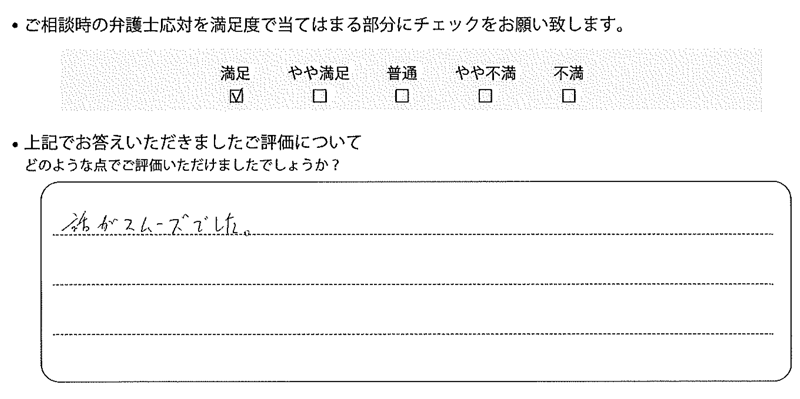 • ご相談時の弁護士応対を満足度で当てはまる部分にチェックをお願い致します。
満足 やや満足 普通 やや不満 不満
☑ ☐ ☐ ☐ ☐
• 上記でお答えいただきましたご評価について
どのような点でご評価いただけましたでしょうか？
話がスムーズでした。